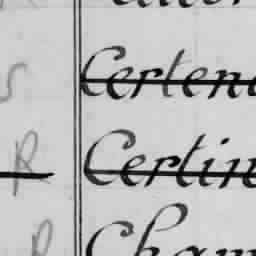 S Certen
R Certin
R Cham